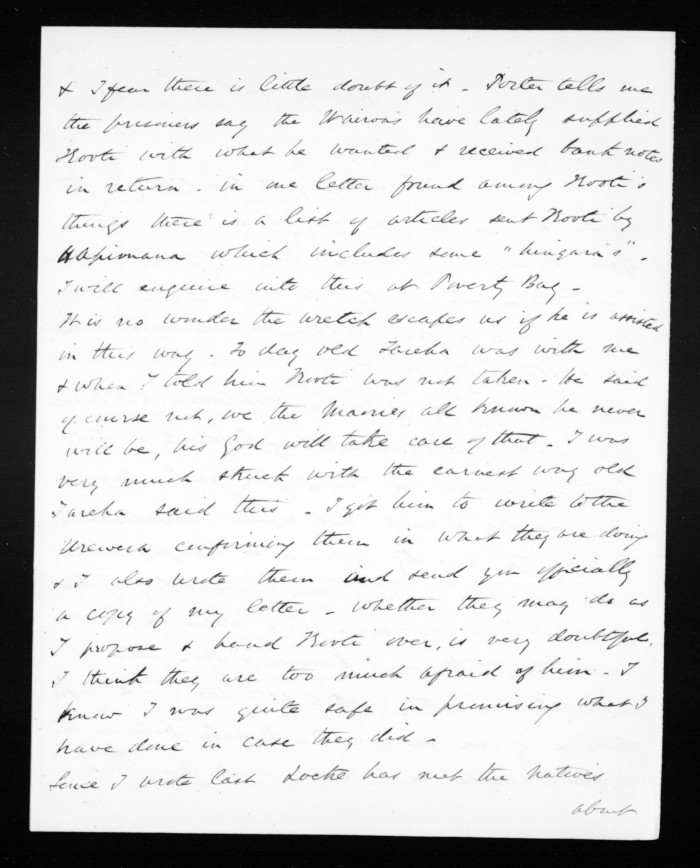 & I fear there is little doubt of it - Porter tells me
the prisoners say the Wairoas have lately supplied
Kooti with what he wanted & received bank notes
in return - in one letter found among Kooti's
things there is a list of articles sent Kooti by
Hapimana which includes some "hingara's" -
I will enquire into this at Poverty Bay -
It is no wonder the wretch escapes us if he is assisted
in this way - To day old Tareha was with me
& when I told him Kooti was not taken - He said
of course not, we the Maories all know he never
will be, his God will take care of that - I was
very much struck with the earnest way old
Tareha said this - I got him to write to the
Urewera confirming them in what they are doing
& I also wrote them and send you officially
a copy of my letter - whether they may do as
I propose & hand Kooti over, is very doubtful.
I think they are too much afraid of him - I
know I was quite safe in promising what I
have done in case they did -
Since I wrote last Locke has met the Natives
about